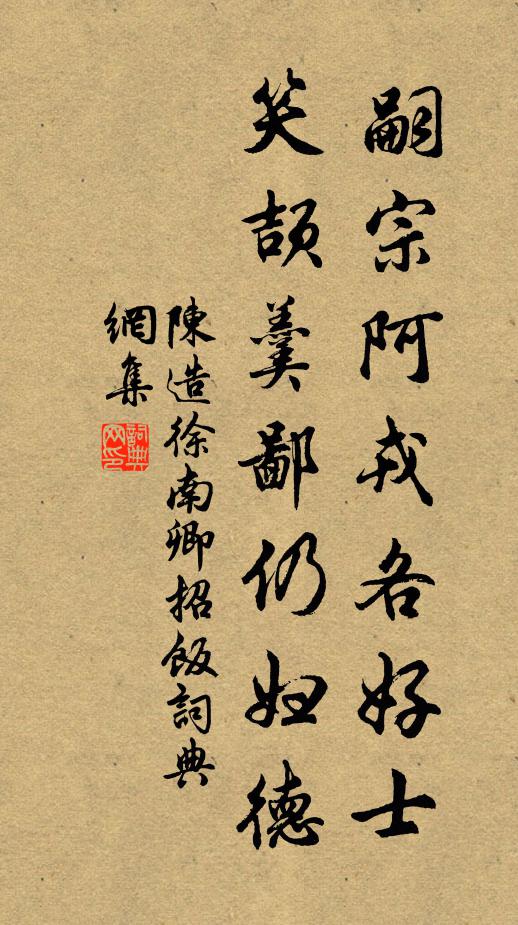 嗣宗阿戎各好士
笑頡羹鄙仍妇德
陳造徐南卿招飯詞典
網集
詞典
网印